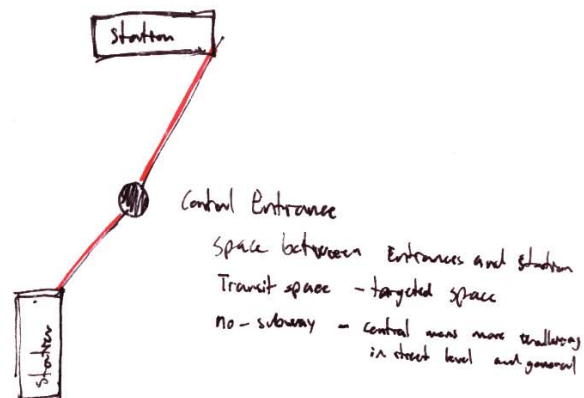 Station
Central Entrance
space between Entrances and station
Transit space - targeted space
no - subway - central means more walking
in street level and general
Station